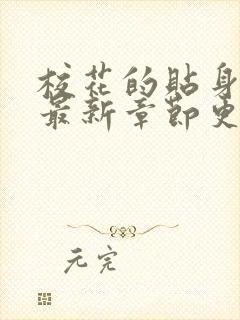 校花的贴身
最新章节更
元完